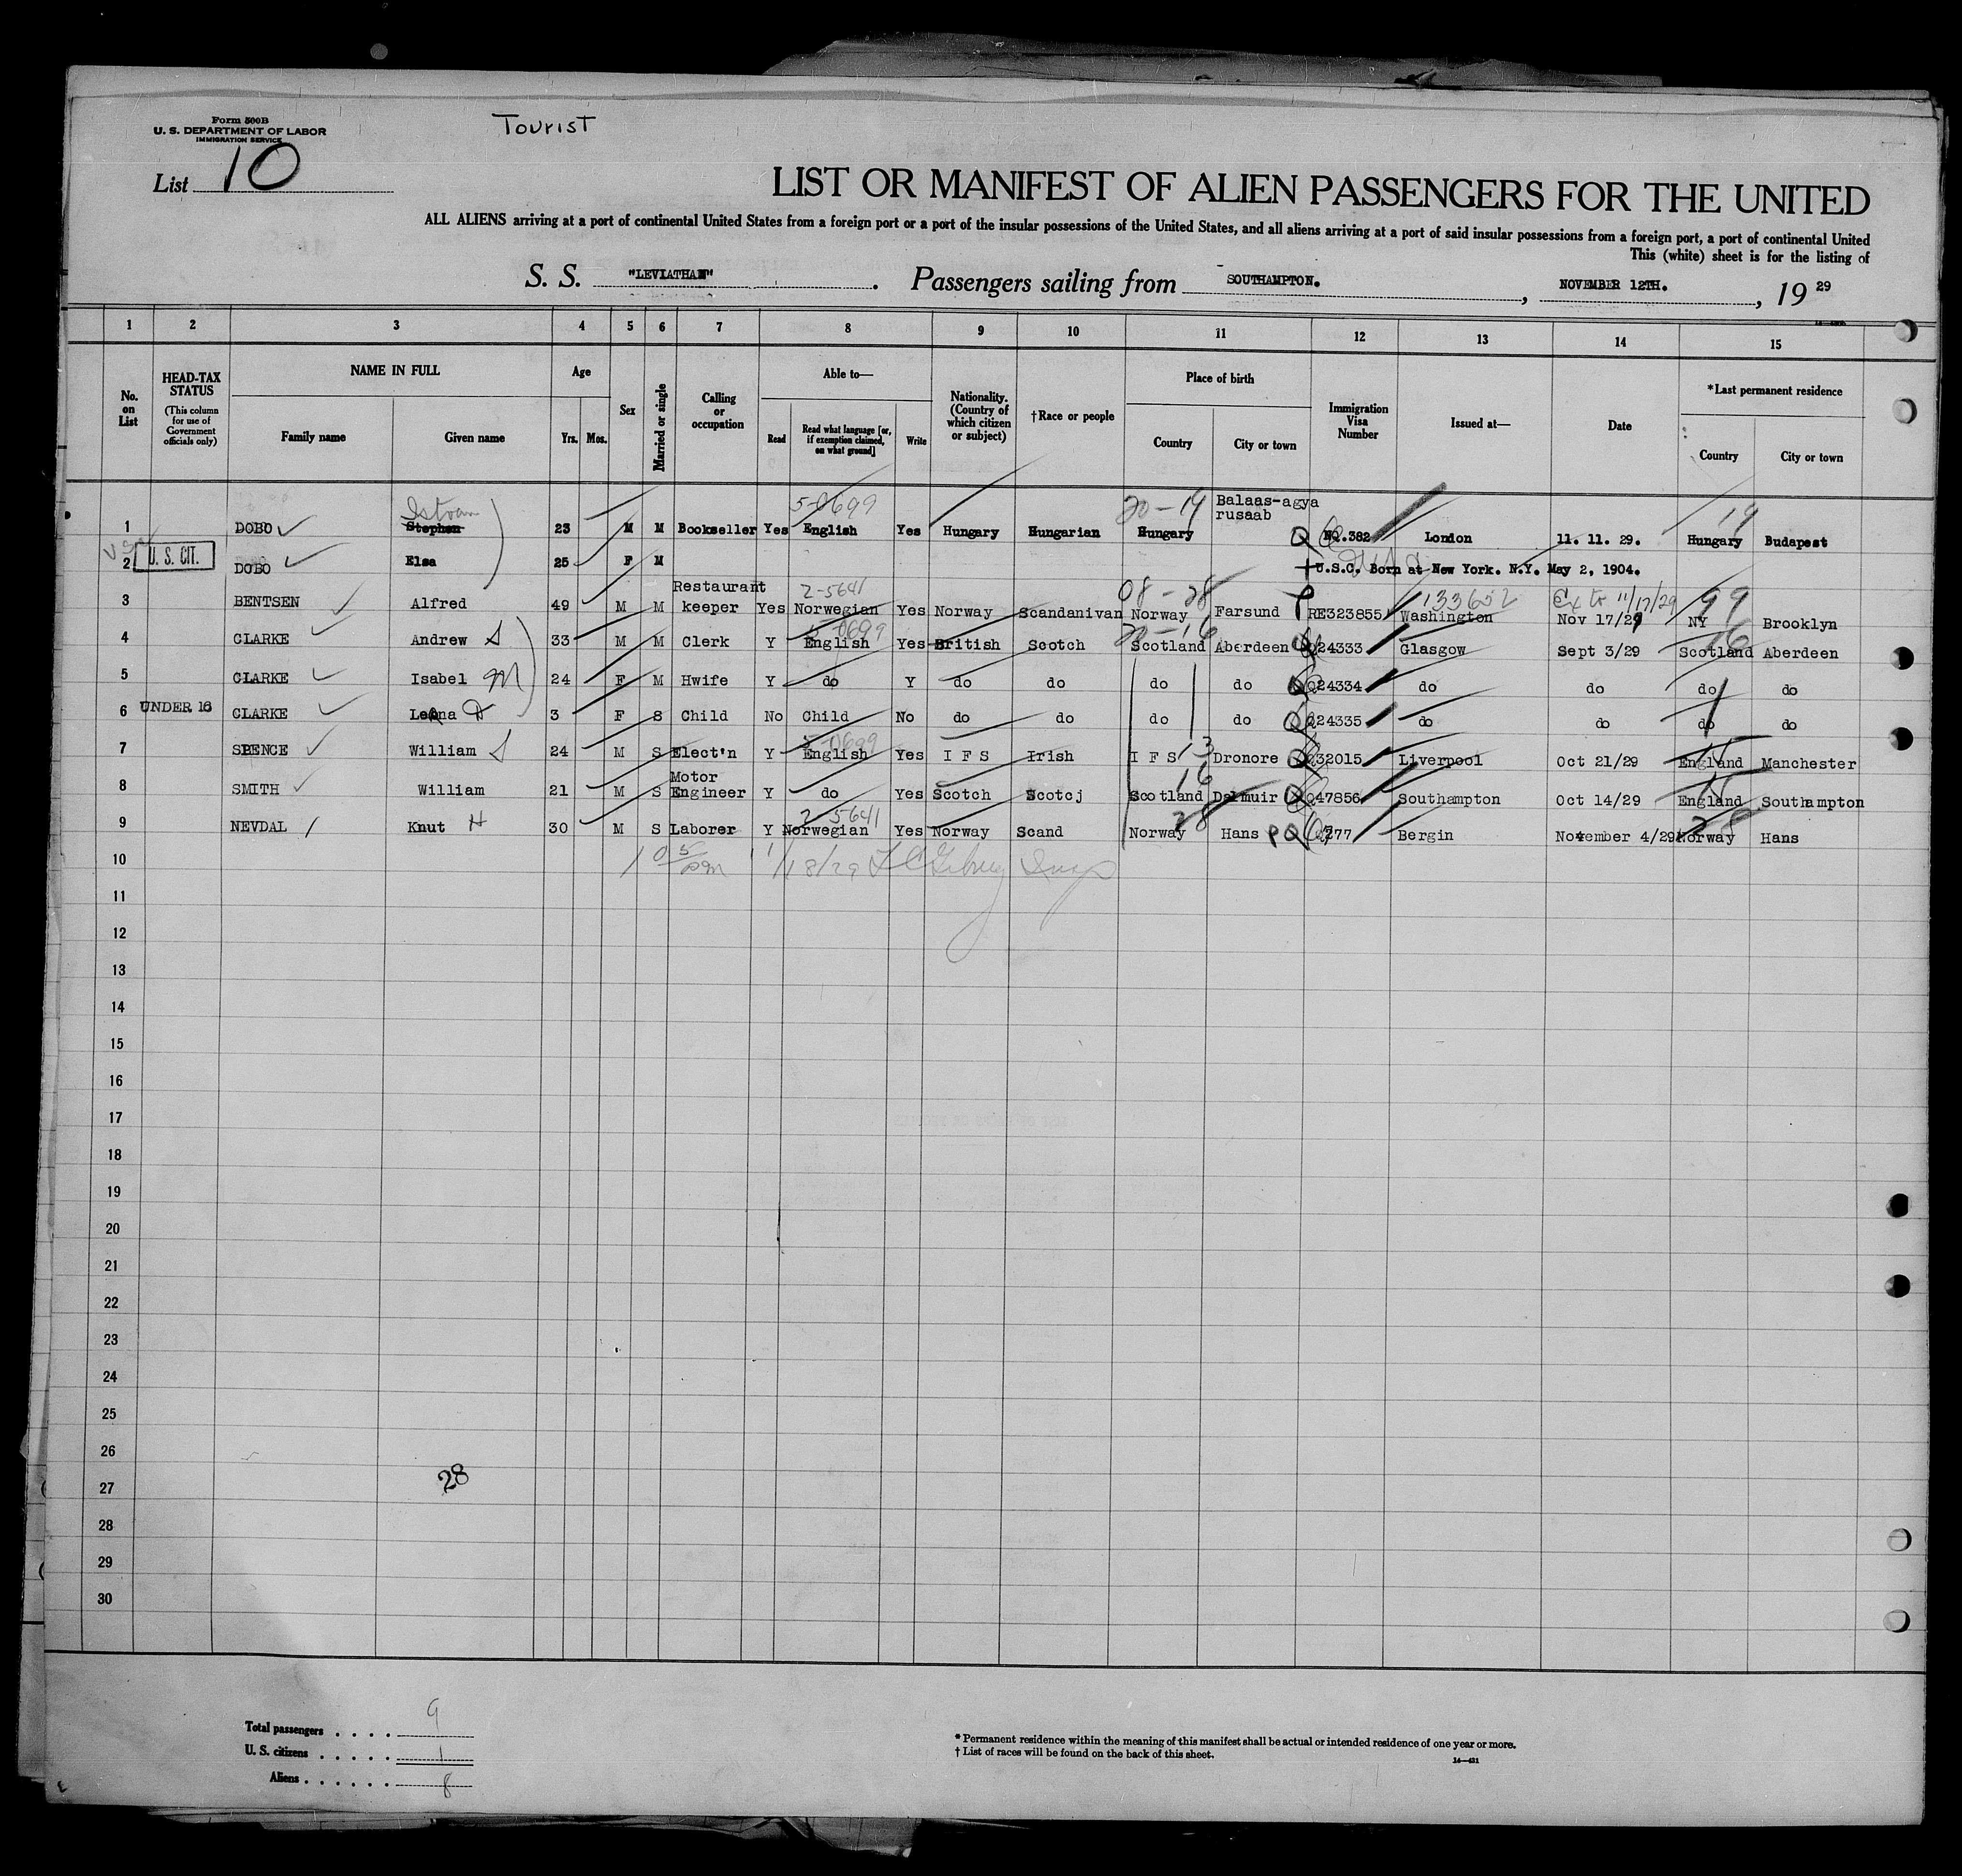 Form 500B
U. S. DEPARTMENT OF LABOR
IMMIGRATION SERVICE
Tourist
List 10
LIST OR MANIFEST OF ALIEN PASSENGERS FOR THE UNITED
ALL ALIENS arriving at a port of continental United States from a foreign port or a port of the insular possessions of the United States, and all aliens arriving at a port of said insular possessions from a foreign port, a port of continental United
This (white) sheet is for the listing of
S. S. "LEVIATHAN" . Passengers sailing from SOUTHAMPTON. , NOVEMBER 12TH. , 19 29
1 2 3 4 5 6 7 8 9 10 11 12 13 14 15
No. on List
HEAD-TAX STATUS
(This column for use of Government officials only)
NAME IN FULL
Family name Given name
Age
Yrs. Mos.
Sex
Married or single
Calling or occupation
Able to—
Read
Read what language [or, if exemption claimed, on what ground]
Write
Nationality. (Country of which citizen or subject)
†Race or people
Place of birth
Country City or town
Immigration Visa Number
Issued at—
Date
*Last permanent residence
Country City or town
Istvan 5-0699 20-14 Balaas-agya 19
rusaab
1 DOBO Stephen 23 M M Bookseller Yes English Yes Hungary Hungarian Hungary Q NQ.382 London 11. 11. 29. Hungary Budapest
2 U. S. CIT. DOBO Elsa 25 F M U.S.C. Born at New York. N.Y. May 2, 1904.
Restaurant 2-5641 08-28 133652 11/17/29 99
3 BENTSEN Alfred 49 M M keeper Yes Norwegian Yes Norway Scandanivan Norway Farsund P RE323855 Washington Nov 17/29 NY Brooklyn
5-0699 20-16 16
4 CLARKE Andrew S 33 M M Clerk Y English Yes British Scotch Scotland Aberdeen Q24333 Glasgow Sept 3/29 Scotland Aberdeen
5 CLARKE Isabel M 24 F M Hwife Y do Y do do do do Q24334 do do do do
6 UNDER 16 CLARKE Leona 3 F S Child No Child No do do do do Q24335 do do do do
5-0699 13 15
7 SPENCE William S 24 M S Elect'n Y English Yes I F S Irish I F S Dronore Q32015 Liverpool Oct 21/29 England Manchester
Motor 16 15
8 SMITH William 21 M S Engineer Y do Yes Scotch Scotcj Scotland Dalmuir Q47856 Southampton Oct 14/29 England Southampton
2-5641 28 28
9 NEVDAL Knut H 30 M S Laborer Y Norwegian Yes Norway Scand Norway Hans PQ 277 Bergin November 4/29 Norway Hans
10 11/18/29
11
12
13
14
15
16
17
18
19
20
21
22
23
24
25
26
27 28
28
29
30
Total passengers . . . . 9
U. S. citizens . . . . . 1
Aliens . . . . . . 8
* Permanent residence within the meaning of this manifest shall be actual or intended residence of one year or more.
† List of races will be found on the back of this sheet.
14—421